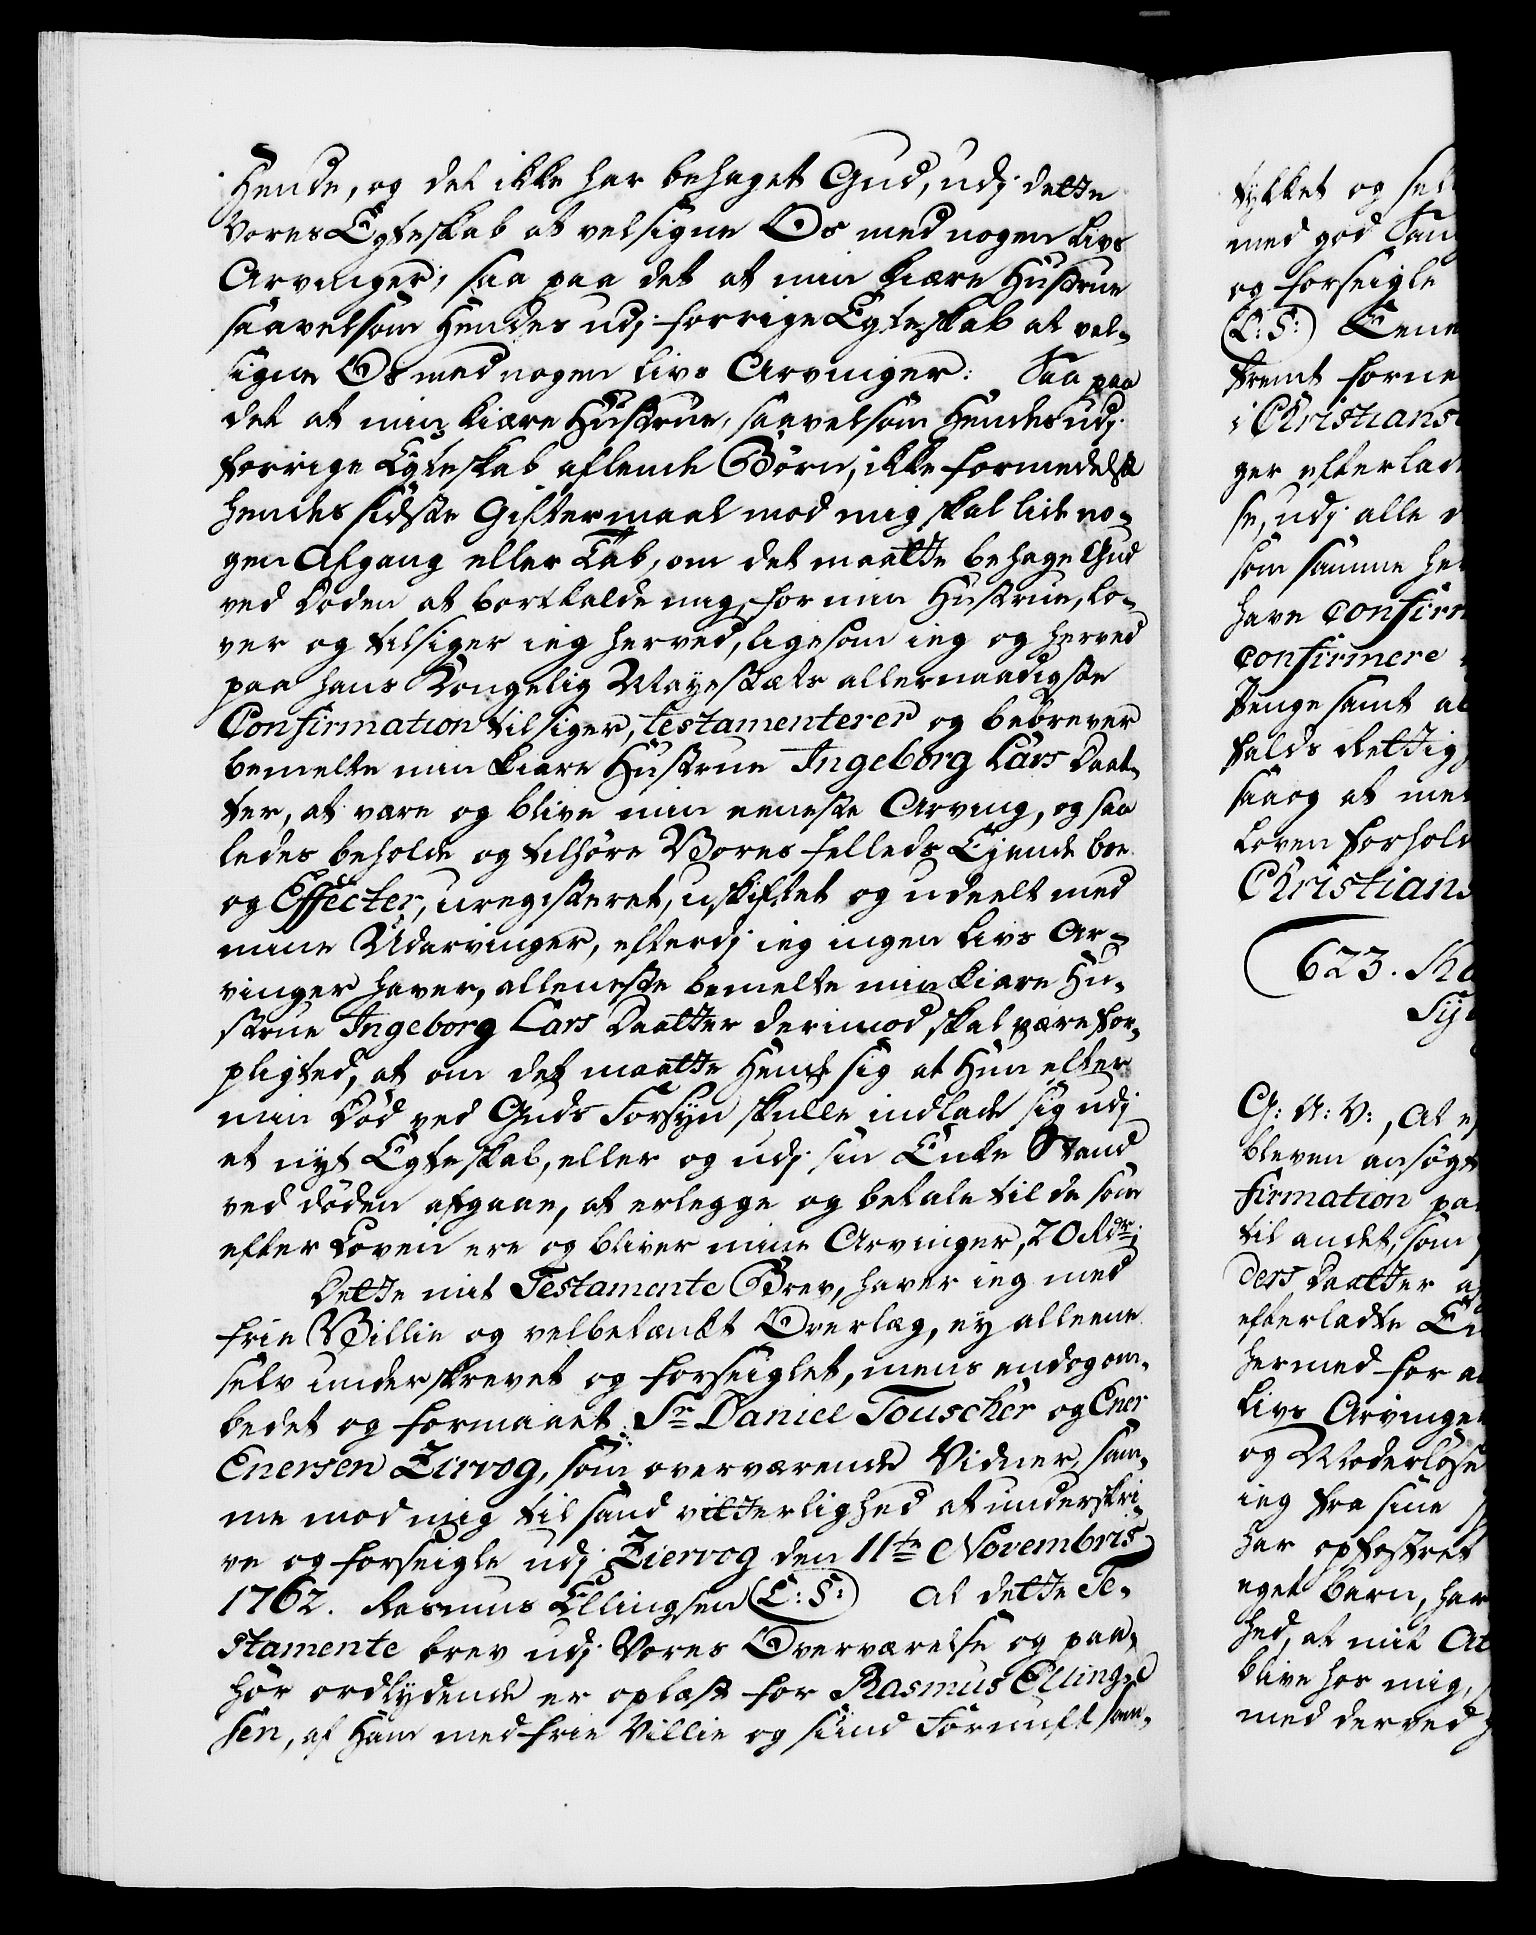 Hende, og det ikke har behaget Gud, udj dette
Vores Egteskab at velsigne Os med nogen Livs
Arvinger, saa paa det at min kiære Hustrue
saavelsom Hendes udj forrige Egteskab at vel-
signe Os med nogen Livs Arvinger: Saa paa
det at min kiære Hustrue, saavelsom Hendes udj
forrige Egteskab aflende Börn, ikke formedelst
hendes sidste Giftermaal med mig skal lide no-
gen Afgang eller Tab, om det maatte behage Gud
ved Döden at bortkalde mig, for min Hustrue, lo-
ver og tilsiger ieg herved, ligesom ieg og herved
paa hans Kongelig Mayestæts allernaadigste
Confirmation tilsiger, testamenterer og bebrever
bemelte min kiære Hustrue Ingeborg Lars Daat-
ter, at være og blive min eeneste Arving, og saa
ledes beholde og tilhöre Vores fælleds Ejende boe
og Effecter, uregisteret, uskiftet og udeelt med
mine Udarvinger, efterdj ieg ingen Livs Ar-
vinger haver, alleneste bemelte min kiære Hu-
strue Ingeborg Lars Daatter derimod skal være for-
pligted, at om det maatte Hende sig at Hun efter
min Död ved Guds Forsyn skulle indlade sig udj
et nyt Egteskab, eller og udj sin Enke Stand
ved döden afgaae, at erlegge og betale til de som
efter Loven ere og bliver mine Arvinger, 20 Rdr:
Dette mit Testamente Brev, haver ieg med
frie Villie og velbetænkt Overlæg, ey alleene
selv underskrevet og forseiglet, mens endog om-
bedet og formaaet Sr Daniel Touscher og Ener
Enersen Zirvog, som overværende Vidner, sam-
me med mig til sand vitterlighed at underskri-
ve og forseigle udj Ziervog den 11te Novembris
1762. Rasmus Ellingsen (L: S:) At dette Te-
stamente brev udj Vores Overværelse og paa-
hör ordlydende er oplæst for Rasmus Elling-
sen, af Ham med frie Villie og sund Fornuft sam-
tykket og
med god
og forseigle
(L: S:)
i Christians
ger efterlad
se, udj alle
som samme
have confirm
confirmere
Penge samt
falds Rettig
saa og at
Loven forhold
Christians
623.
G: A: V:, At
bleven ansögt
firmation
til andet, som
ders Daatter
efterladte
hermed for
Livs Arvinger
og Moderlöse
ieg fra sine
har opfostret
eget barn, har
hed, at mit
blive hos mig,
med derved